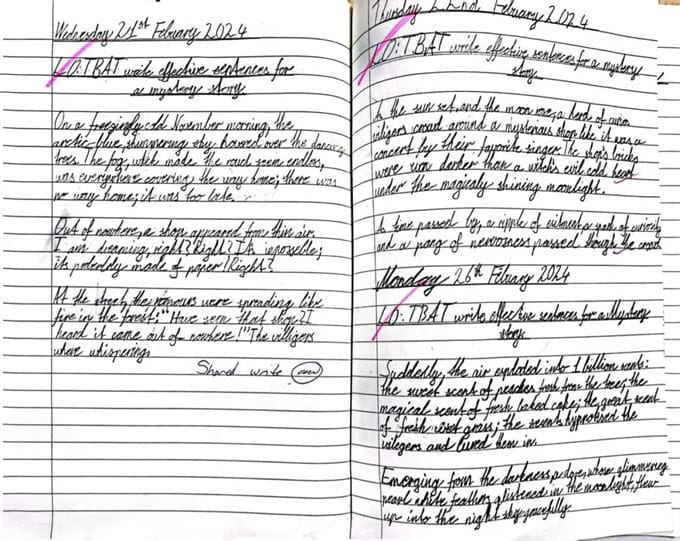 Wednesday 21st Febuary 2024
LO: TBAT write effective sentences for
a mystery story
On a freezingly cold November morning, the
arctic-blue, shimmering sky hovered over the dancing
trees. The fog, which made the road seem endless,
was everywhere covering the way home; there was
no way home; it was too late.
Out of nowhere, a shop appeared from thin air.
I am dreaming, right? Right? It's impossible;
its proberbly made of paper! Right?
At the street, the rumours were spreading like
fire in the forest: "Have seen that shop? I
heard it came out of nowhere!" The villigers
where whispering.
Shared write
Thursday 22nd Febuary 2024
LO: TBAT write effective sentences for a mystery
story
As the sun set and the moon rose, a herd of
viligers crowd around a mysterious shop like it was a
concert by their favorite singer. The shop's bricks
were even darker than a witch's evil cold heart
under the magicaly shining moonlight.
As time passed by, a ripple of exitment, a of curiosity
and a pang of nervosness passed though the crowd
Monday 26th Febuary 2024
LO: TBAT write effective sentences for a Mystery
story
Suddenly, the air exploded into 1 billion scents:
the sweet scent of peaches fresh from the tree; the
magical scent of fresh baked cake; the great scent
of fresh wet grass; the scents hypnotised the
vilegers and lured them in.
Emerging from the darkness, a dove, whose glimmering
pearl white feathers glistened in the moonlight, flew
up into the night sky gracefully